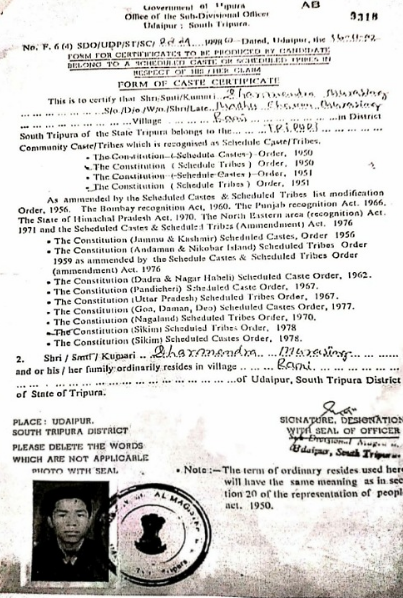 Government of Tripura
AB
Office of the Sub-Divisional Officer
9318
Udaipur : South Tripura.
No. F. 6 (4) SDO/UDP/ST/SC/ Dated, Udaipur, the
FORM FOR CERTIFICATES TO BE PRODUCED BY CANDIDATE
BELONG TO A SCHEDULED CASTE OR SCHEDULED TRIBES IN
RESPECT OF HIS/HER CLAIM
FORM OF CASTE CERTIFICATE
This is to certify that Shri/Smti/Kumari
S/o./D/o./W/o./Shri/Late
Village in District
South Tripura of the State Tripura belongs to the
Community Caste/Tribes which is recognised as Schedule Caste/Tribes.
• The Constitution (Schedule Castes) Order, 1950
• The Constitution ( Schedule Tribes ) Order, 1950
• The Constitution (Schedule Castes) Order, 1951
• The Constitution ( Schedule Tribes ) Order, 1951
As ammended by the Scheduled Castes & Scheduled Tribes list modification
Order, 1956. The Bombay recognition Act, 1960. The Punjab recognition Act. 1966.
The State of Himachal Pradesh Act, 1970. The North Eastern area (recognition) Act.
1971 and the Scheduled Castes & Scheduled Tribes (Ammendment) Act. 1976
• The Constitution (Jammu & Kashmir) Scheduled Castes, Order 1956
• The Constitution (Andamun & Nikobar Island) Scheduled Tribes Order
1959 as ammended by the Schedule Castes & Scheduled Tribes Order
(ammendment) Act. 1976
• The Constitution (Dadra & Nagar Habeli) Scheduled Caste Order, 1962.
• The Constitution (Pandicheri) Scheduled Caste Order, 1967.
• The Constitution (Uttar Pradesh) Scheduled Tribes Order, 1967.
• The Constitution (Goa, Daman, Deo) Scheduled Castes Order, 1977.
• The Constitution (Nagaland) Scheduled Tribes Order, 1970.
• The Constitution (Sikim) Scheduled Tribes Order, 1978
• The Constitution (Sikim) Scheduled Castes Order, 1978.
2. Shri / Smti / Kumari
and or his / her family ordinarily resides in village
of Udaipur, South Tripura District
of State of Tripura.
PLACE : UDAIPUR.
SOUTH TRIPURA DISTRICT
SIGNATURE, DESIGNATION
WITH SEAL OF OFFICER
Udaipur, South Tripura
PLEASE DELETE THE WORDS
WHICH ARE NOT APPLICABLE
PHOTO WITH SEAL
• Note :—The term of ordinary resides used here
will have the same meaning as in sec
tion 20 of the representation of people
act. 1950.